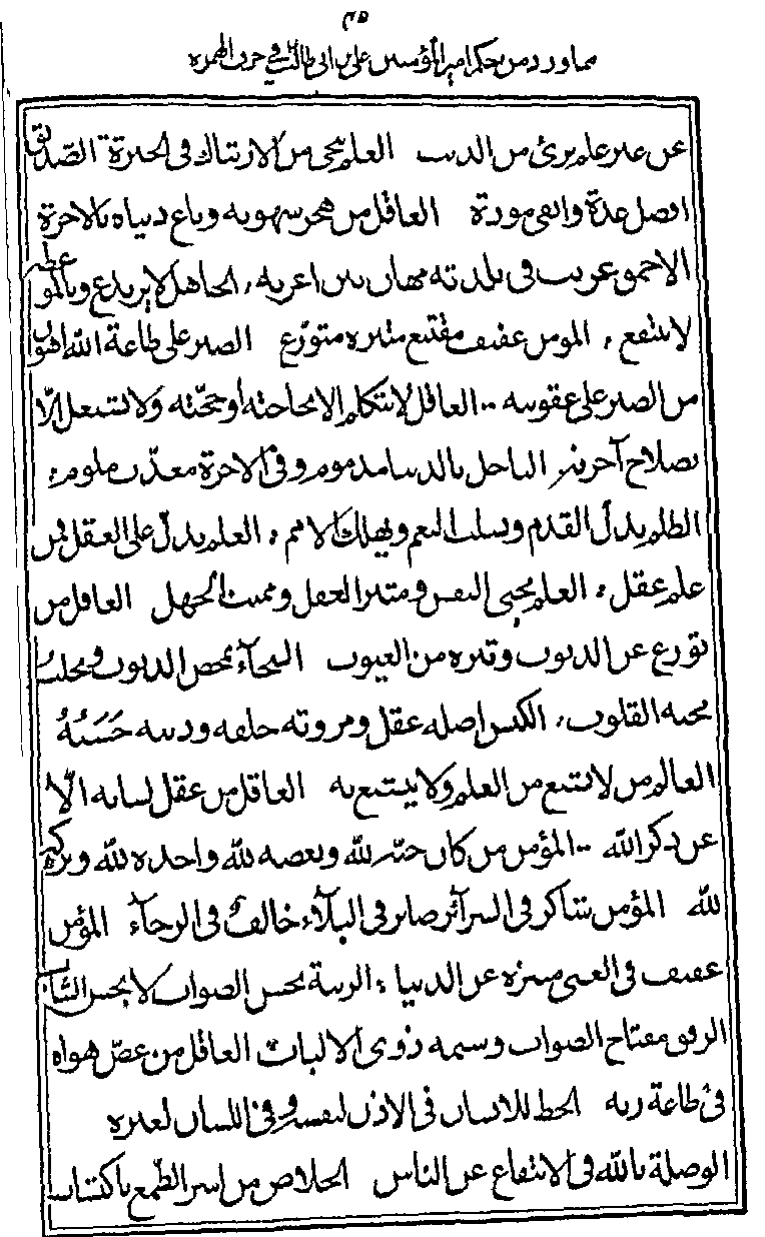 ٥٣
مما ورد من حكم امير المؤمنين علي بن ابي طالب في حرف الهمزه
من غير علم برئ من الدين العلم ينجي من الارتباك في الحيرة الصديق
افضل عدة وابقى مودة العاقل من هجر شهوته وباع دنياه بالاخرة
الاحمق غريب في بلدته مهان بين اعزته الجاهل لا يرتدع وبالمواعظ
لا ينتفع المومن عفيف مقتنع متنزه متورّع الصبر على طاعة الله اهون
من الصبر على عقوبته العاقل لا يتكلم الا بحاجته أو حجّته ولا يشتغل الّا
بصلاح آخرته الباخل بالدنيا مذموم وفي الاخرة معذّب ملوم
الظلم يزلّ القدم ويسلب النعم ويهلك الامم العلم يدلّ على العقل فمن
علم عقل العلم يحيي النفس وينير العقل ويميت الجهل العاقل من
تورع عن الذنوب وتنزه من العيوب السخآء يمحص الذنوب ويجلب
محبة القلوب الكيس اصله عقله ومروته خلقه ودينه حَسَبُهُ
العالم من لا يشبع من العلم ولا يتشبع به العاقل من عقل لسانه الّا
عن ذكر الله المؤمن من كان حبّه لله وبغضه لله واخذه لله وتركه
لله المؤمن شاكر في السرآئر صابر في البلآء خائف في الرخآء المؤمن
عفيف في الغنى متنزه عن الدنيا الزينة بحسن الصواب لا بحسن الثياب
الرفق مفتاح الصواب وسيمه ذوى الالباب العاقل من عصى هواه
في طاعة ربه الحظ للانسان في الاذن لنفسه وفي اللسان لغيره
الوصلة بالله في الانقطاع عن الناس الخلاص من اسر الطّمع باكتساب